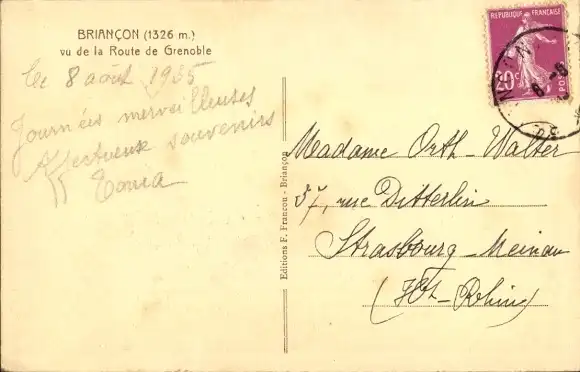 BRIANÇON (1326 m.)
vu de la Route de Grenoble
le 8 août 1935
Journées merveilleuses
Affectueux souvenirs
Tonia
Editions F. Francou - Briançon
REPUBLIQUE FRANÇAISE
20c
POSTES
Madame Orth-Walter
37, rue Ditterlin
Strasbourg-Meinau
(Ht-Rhin)